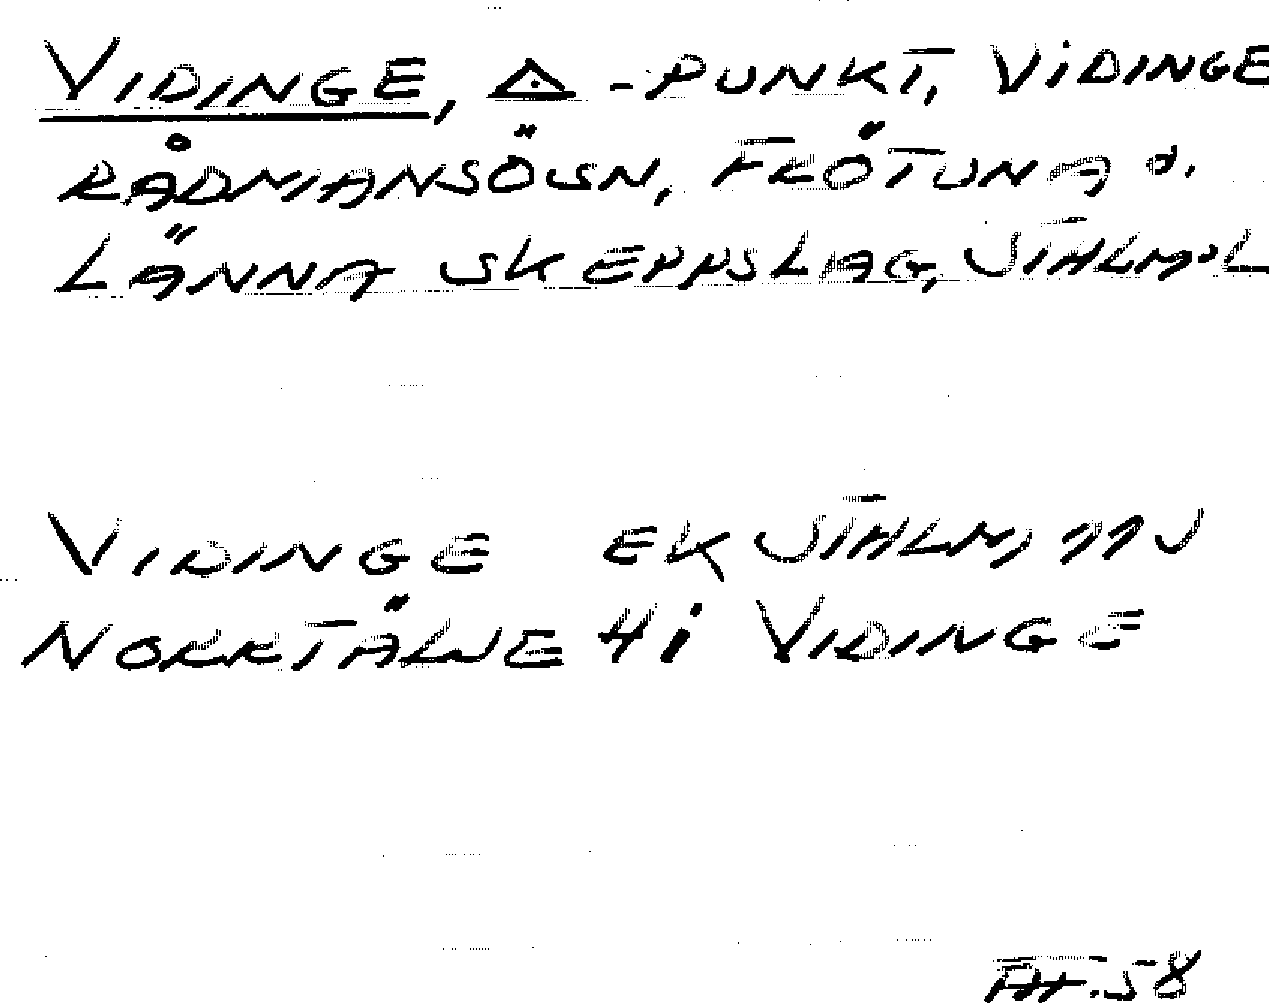 VIDINGE, △-PUNKT, VIDINGE
RÅDMANSÖ SN, FRÖTUNA O.
LÄNNA SKEPPSLAG, STHLMS L
VIDINGE EK STHLM, 11J
NORRTÄLJE 4i VIDINGE
58